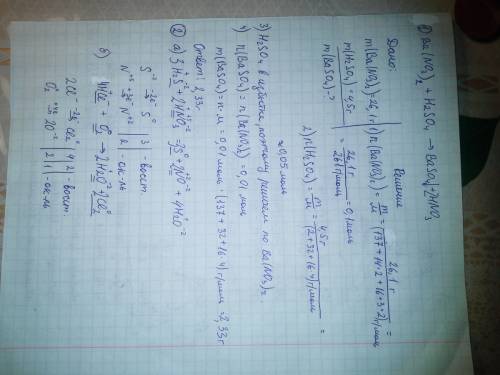 ① Ba(NO₃)₂ + H₂SO₄ → BaSO₄↓+2HNO₃
Дано:
m(Ba(NO₃)₂)=26,1 г
m(H₂SO₄)=4,5г
m(BaSO₄)-?
Решение
1) n(Ba(NO₃)₂) = m/M = 26,1 г/(137+14·2+16·3·2) г/моль =
= 26,1 г/261 г/моль = 0,1 моль
2) n(H₂SO₄) = m/M = 4,5г/(2+32+16·4) г/моль =
≈ 0,05 моль
3) H₂SO₄ в избытке, поэтому решаем по Ba(NO₃)₂.
4) n(BaSO₄) = n(Ba(NO₃)₂) = 0,01 моль
m(BaSO₄) = n·M = 0,01 моль · (137+32+16·4) г/моль = 2,33г
Ответ: 2,33г.
② а) 3H₂S + 2HNO₃ = 3S⁰ + 2NO + 4H₂O
S⁻² -2e S⁰ | 3 | - восст.
N⁺⁵ +3e N⁺² | 2 | - ок-ль
б) 4HCl + O₂⁰ → 2H₂O⁻² + 2Cl₂⁰
2Cl⁻ -2e Cl₂⁰ | 4 | 2 | - восст.
O₂ +4e 2O⁻² | 2 | 1 | - ок-ль